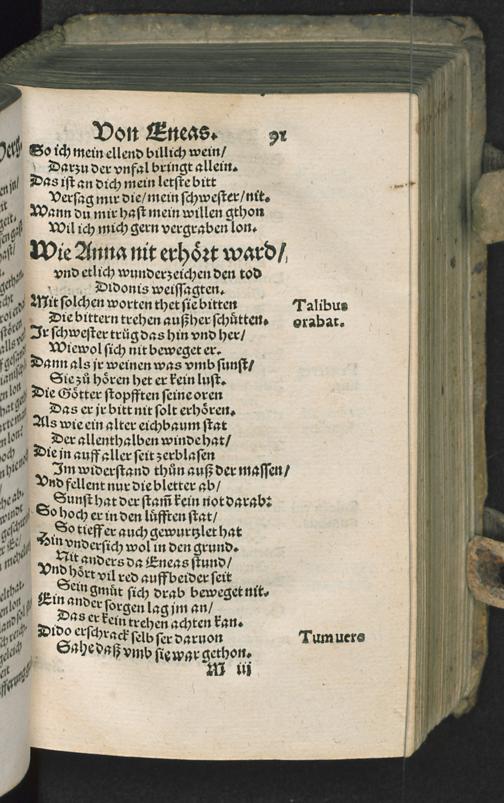 Von Eneas. 91
So ich mein ellend billich wein/
Darzu der vnfal bringt allein.
Das ist an dich mein letste bitt
Versag mir die/ mein schwester/ nit.
Wann du mir hast mein willen gthon
Wil ich mich gern vergraben lon.
Wie Anna nit erhört ward/
vnd etlich wunderzeichen den tod
Didonis weissagten.
Mit solchen worten thet sie bitten
Talibus
Die bittern trehen außher schütten.
orabat.
Ir schwester trůg das hin vnd her/
Wiewol sich nit beweget er.
Dann als jr weinen was vmb sunst/
Sie zů hören het er kein lust.
Die Götter stopfften seine oren
Das er jr bitt nit solt erhören.
Als wie ein alter eichbaum stat
Der allenthalben winde hat/
Die jn auff aller seit zerblasen
Im widerstand thůn auß der massen/
Vnd fellent nur die bletter ab/
Sunst hat der stam̃ kein not darab:
So hoch er in den lüfften stat/
So tieff er auch gewurtzlet hat
Hin vndersich wol in den grund.
Nit anders da Eneas stund/
Vnd hört vil red auff beider seit
Sein gmüt sich drab beweget nit.
Ein ander sorgen lag jm an/
Das er kein trehen achten kan.
Dido erschrack selbser daruon
Tum uero
Sahe daß vmb sie war gethon.
M iij